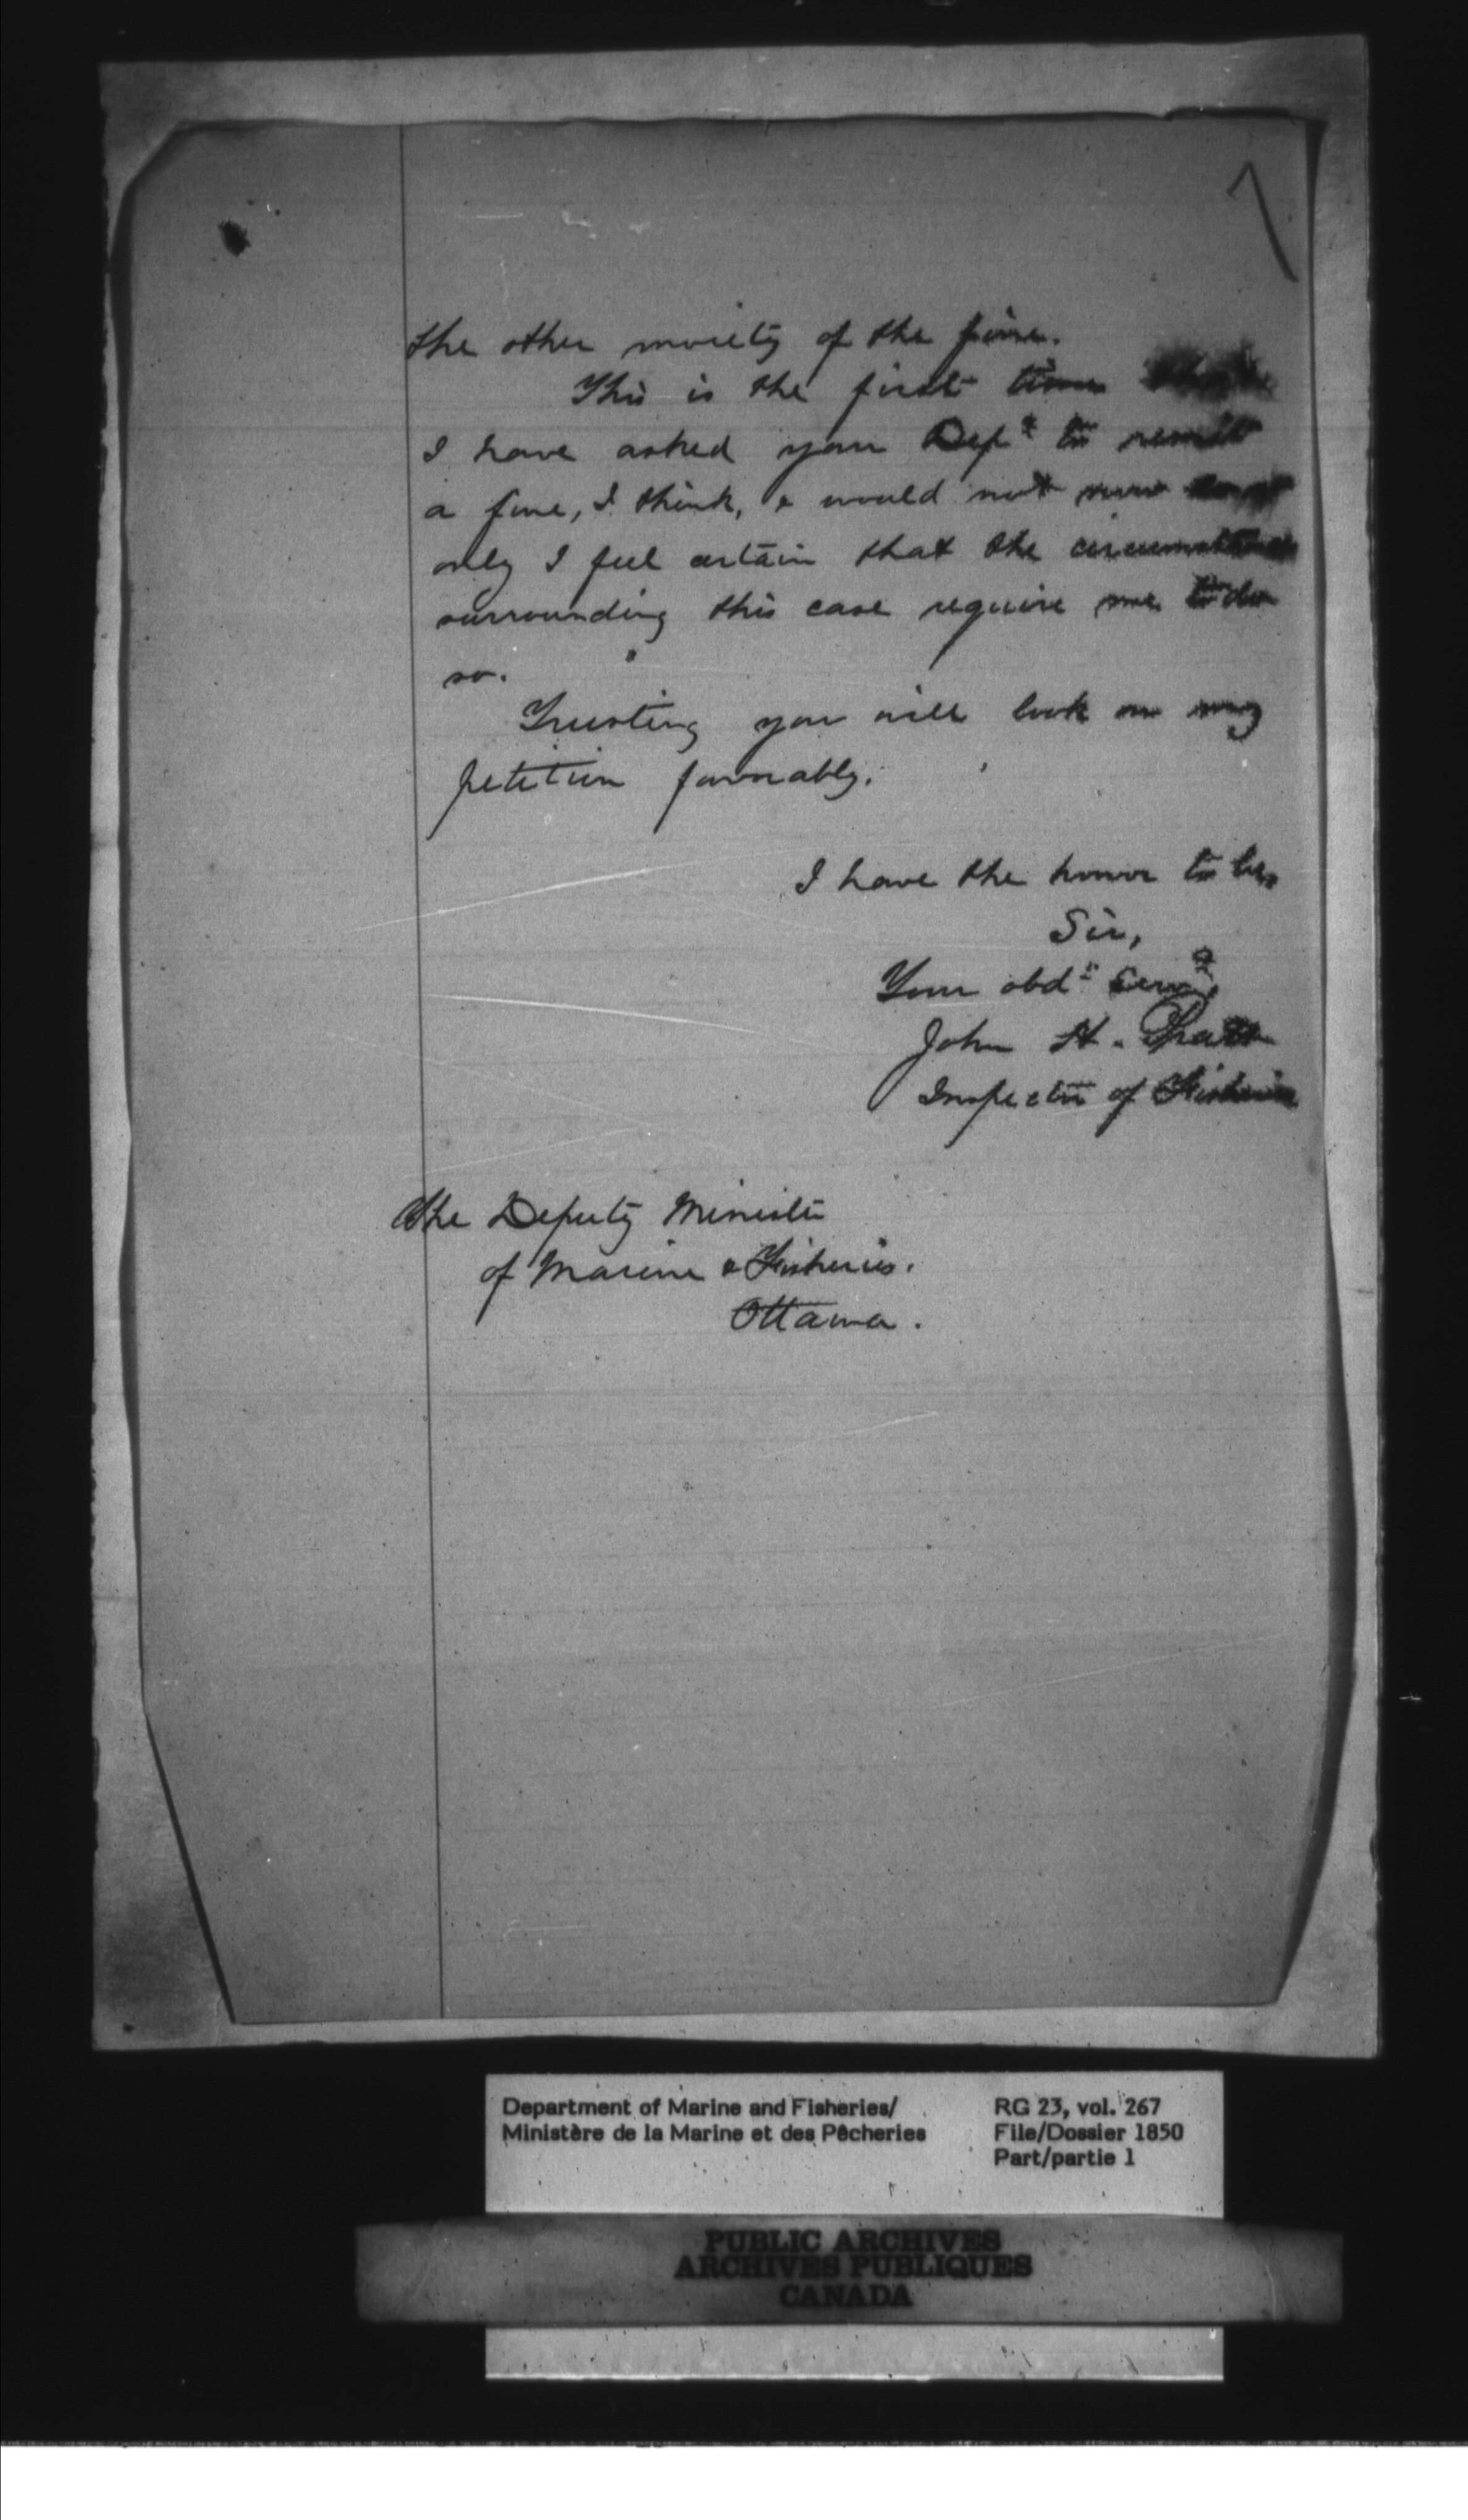 the other moiety of the fine.
This is the first time that
I have asked your Dept to remit
a fine, I think, & would not now
only I feel certain that the circumstances
surrounding this case require me to do
so.
Trusting you will look on my
petition favorably.
I have the honor to be,
Sir,
Your obdt servt,
John H. Pratt
Inspector of Fisheries
The Deputy Minister
of Marine & Fisheries.
Ottawa.
Department of Marine and Fisheries/
Ministère de la Marine et des Pêcheries
RG 23, vol. 267
File/Dossier 1850
Part/partie 1
PUBLIC ARCHIVES
ARCHIVES PUBLIQUES
CANADA